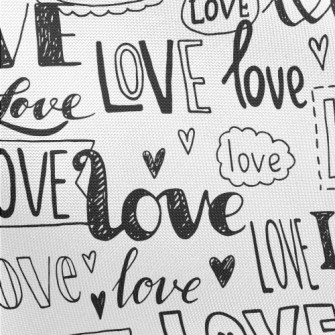 LOVE
LOVE
love
love
love
OVE
love
LOVE
ove
love